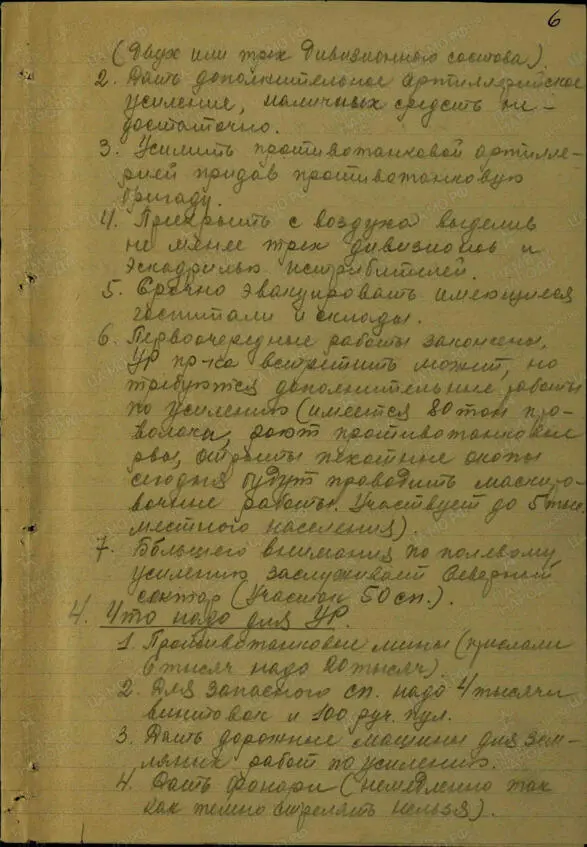 6
(Двух или трех Дивизионного состава).
2. Дать дополнительное артиллерийское
усиление, наличных средств не-
достаточно.
3. Усилить противотанковой артилле-
рией придав противотанковую
бригаду.
4. Прикрыть с воздуха выделив
не менее трех дивизионов и
эскадрилью истребителей.
5. Срочно эвакуировать имеющиеся
госпитали и склады.
6. Первоочередные работы закончены,
УР пр-ка встретить может, но
требуются дополнительные работы
по усилению (имеется 80 тон про-
волоки, роют противотанковые
рвы, открыты пехотные окопы
сегодня будут проводить маскиро-
вочные работы. Участвует до 5 тыс.
местного населения).
7. Большего внимания по полевому
усилению заслуживает Северный
сектор (Участок 50 сп.).
4. Что надо для УР.
1. Противотанковые мины (прислали
6 тысяч надо 20 тысяч)
2. Для запасного сп. надо 4 тысячи
винтовок и 100 руч. пул.
3. Дать дорожные машины для зем-
ляных работ по усилению.
4. Дать фонари (немедленно так
как темно стрелять нельзя).